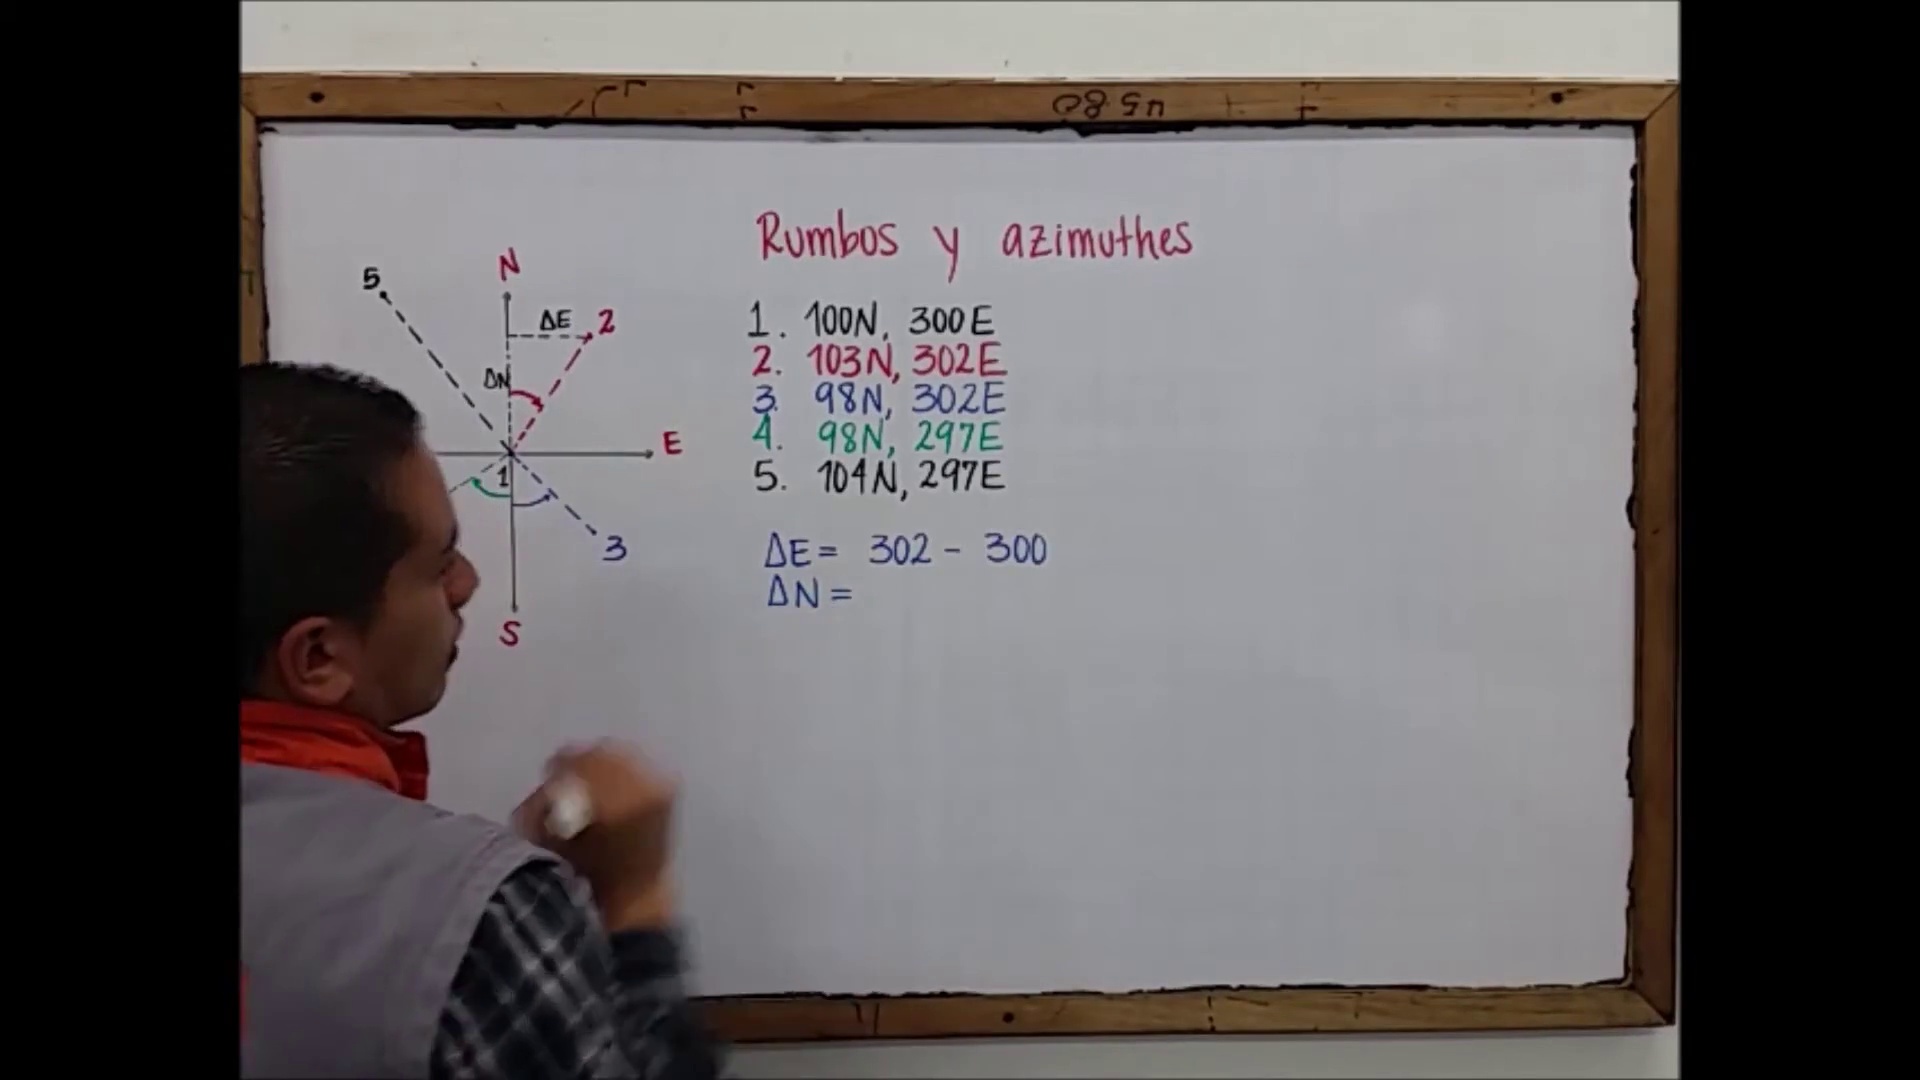 Rumbos y azimuthes
N
5
ΔE 2
ΔN
E
1
3
S
1. 100N, 300E
2. 103N, 302E
3. 98N, 302E
4. 98N, 297E
5. 104N, 297E
ΔE = 302 - 300
ΔN =